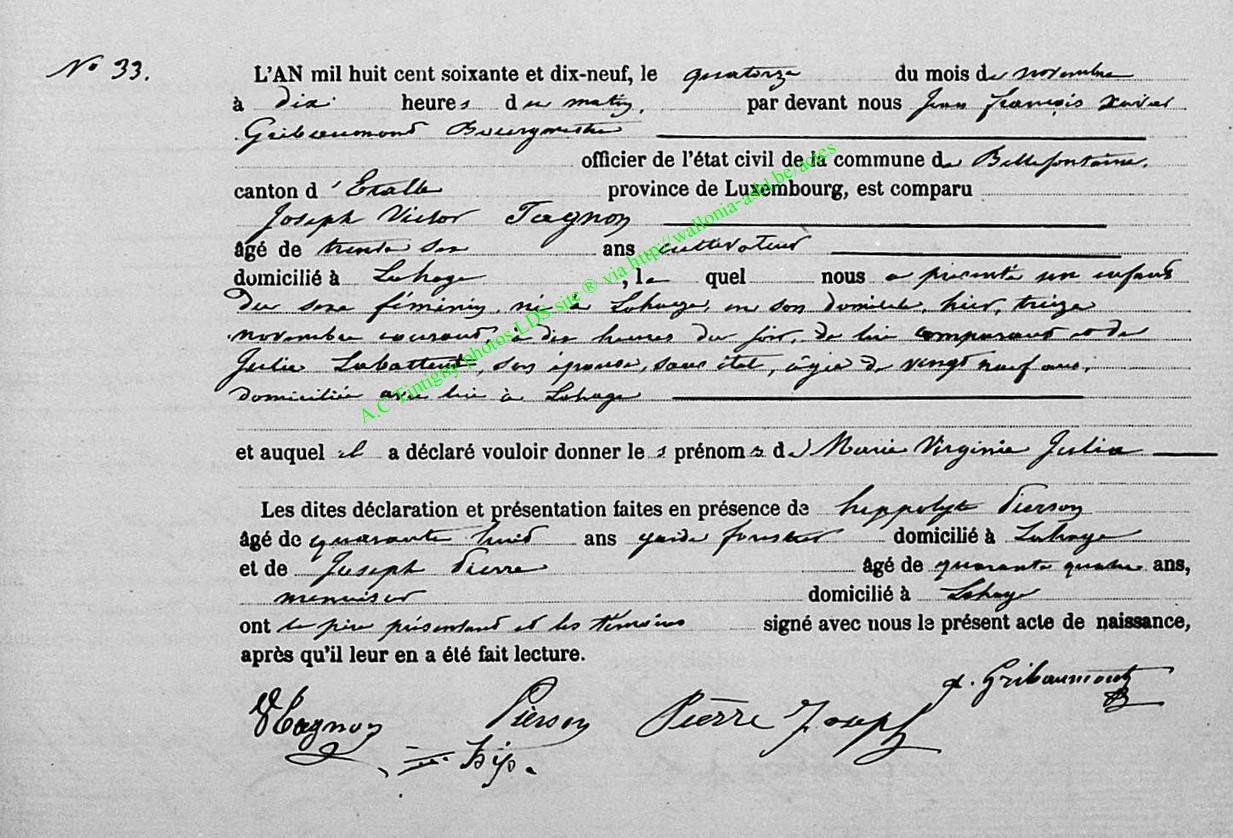 N° 33.
L'AN mil huit cent soixante et dix-neuf, le quatorze du mois de novembre
à dix heures du matin, par devant nous Jean françois xavier
Gribaumont Bourgmestre
officier de l'état civil de la commune de Bellefontaine,
canton d'Etalle province de Luxembourg, est comparu
Joseph Victor Tagnon
âgé de trente ans cultivateur
domicilié à Lahage, le quel nous a présenté un enfant
du sexe féminin, né à Lahage, en son domicile, hier, treize
novembre courant, à dix heures du soir, de lui comparant et de
Julie Labattent, son épouse, sans état, âgée de vingt neuf ans,
domiciliée avec lui à Lahage
et auquel il a déclaré vouloir donner les prénoms de Marie Virginie Julia
Les dites déclaration et présentation faites en présence de hippolyte Pierson
âgé de quarante huit ans garde forestier domicilié à Lahage
et de Joseph Pierre âgé de quarante quatre ans,
menuisier domicilié à Lahage
ont le père présentant et les témoins signé avec nous le présent acte de naissance,
après qu'il leur en a été fait lecture.
x. Gribaumont
VTagnon Pierson Pierre Joseph
hip.
A.C Tintigny photos LDS site ® via http://wallonia-asbl.be/actes